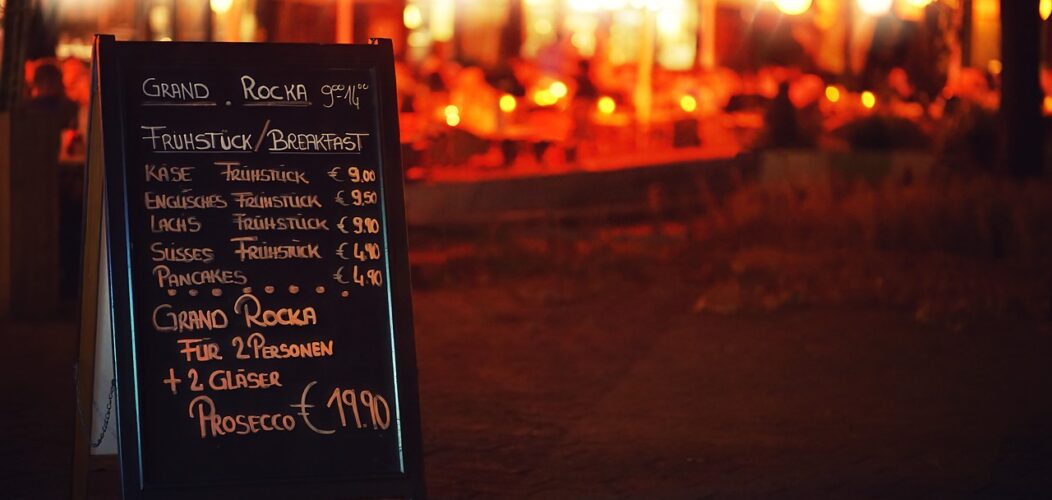 GRAND . ROCKA 9⁰⁰14⁰⁰
FRÜHSTÜCK/BREAKFAST
KÄSE FRÜHSTÜCK € 9.00
ENGLISCHES FRÜHSTÜCK € 9.50
LACHS FRÜHSTÜCK € 9.90
SÜSSES FRÜHSTÜCK € 4.90
PANCAKES € 4.90
GRAND ROCKA
FÜR 2 PERSONEN
+ 2 GLÄSER
PROSECCO € 19.90